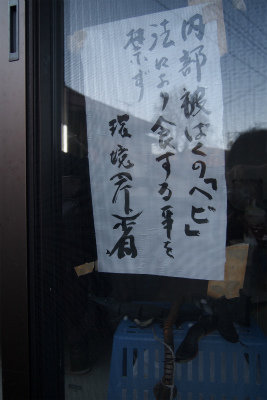 内部被ばくの「ヘビ」
法により食する事を
禁ず
環境省